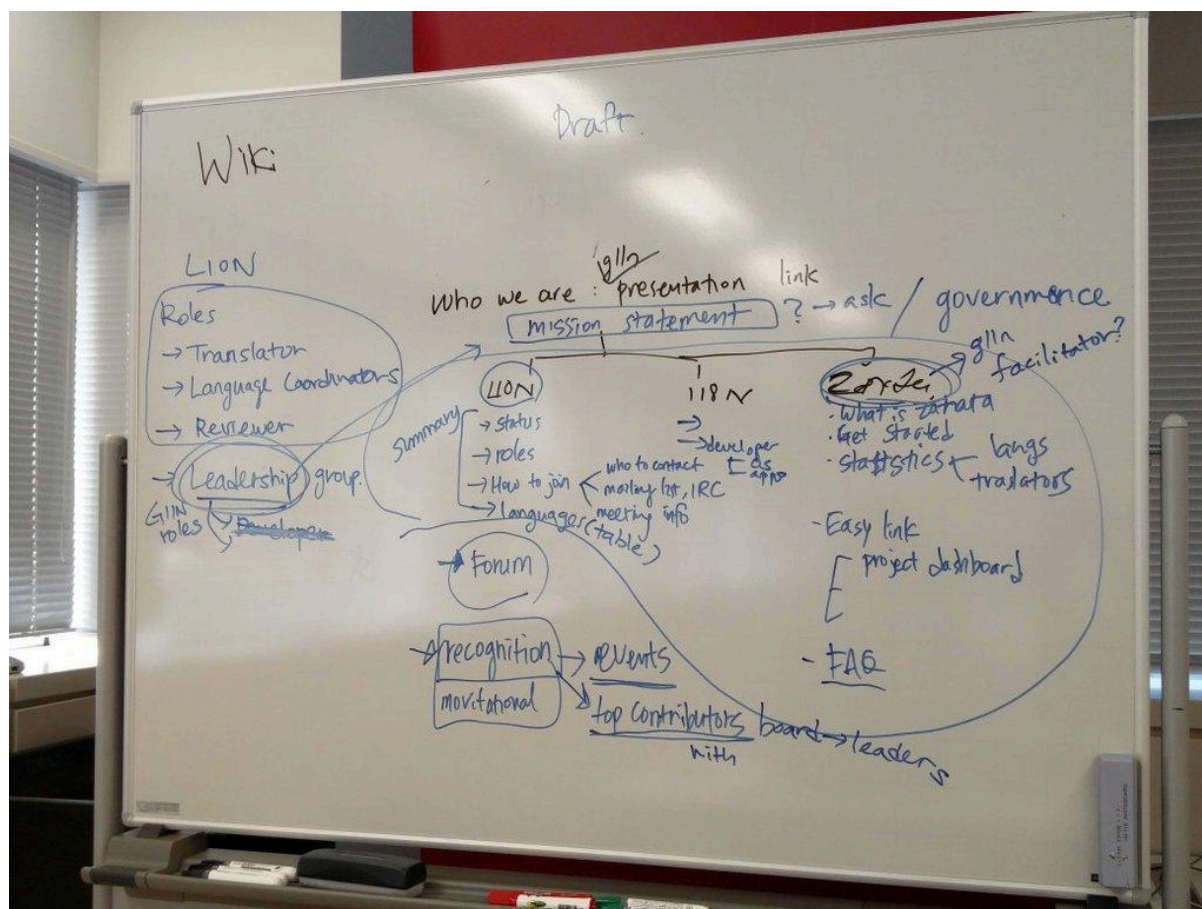 Draft
Wiki
L10N
Roles
→ Translator
→ Language Coordinators
→ Reviewer
→ Leadership group.
G11N roles
→ Developer
g11n
Who we are : presentation link
mission statement ? → ask / governmence
L10N
summary
→ status
→ roles
→ How to join
who to contact
mailing list, IRC
meeting info
→ languages (table)
I18N
→
→ developer
os
apps
→ g11n facilitator?
· What is zanata
· Get Started
· Statistics
langs
traslators
- Easy link
project dashboard
- FAQ
→ Forum
→ recognition → events
movitational
top contributors board → leaders
with